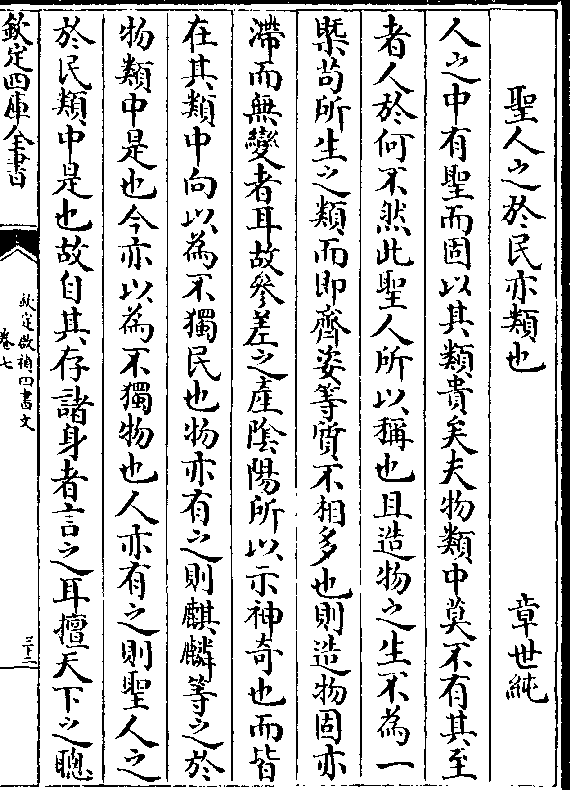 聖人之於民亦類也 章世純
人之中有聖而固以其類貴矣夫物類中莫不有其至
者人於何不然此聖人所以稱也且造物之生不為一
槩苟所生之類而即齊姿等質不相多也則造物固亦
滯而無變者耳故參差之產陰陽所以示神奇也而皆
在其類中向以為不獨民也物亦有之則麒麟等之於
物類中是也今亦以為不獨物也人亦有之則聖人之
於民類中是也故自其存諸身者言之耳擅天下之聰
欽定四庫全書
欽定啟禎四書文
卷七
三十二